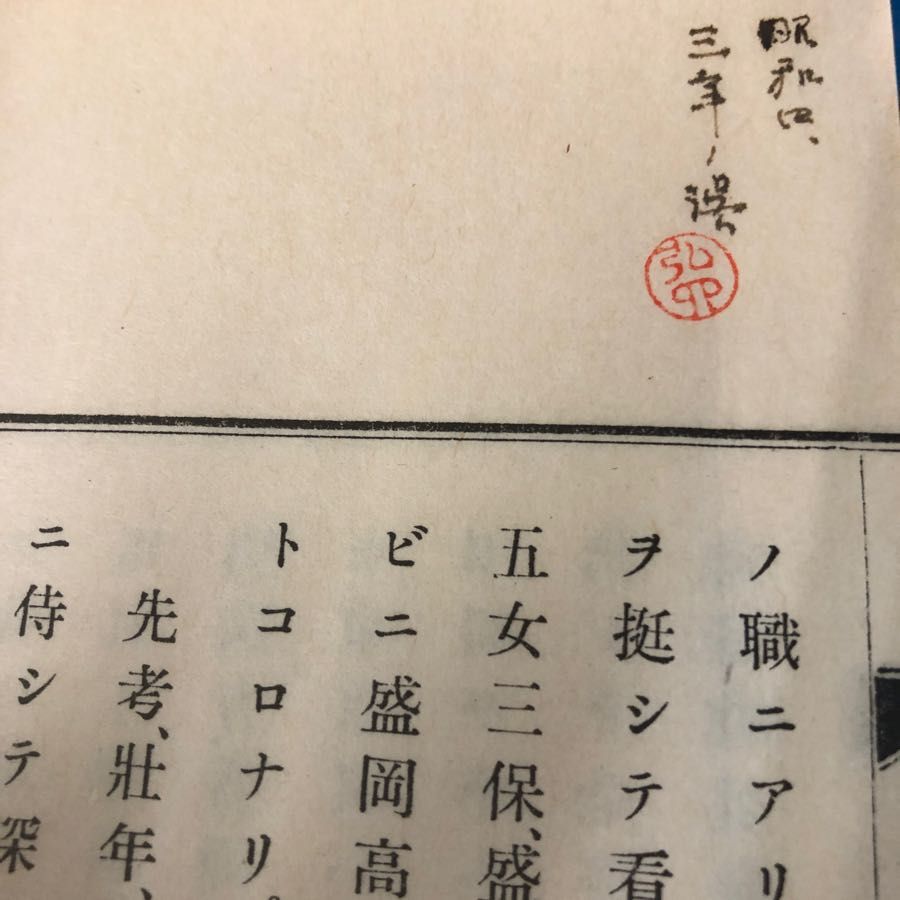 昭和四、
三年ノ誤
弘
ノ職ニアリ
ヲ挺シテ看
五女三保、盛
ビニ盛岡高
トコロナリ。
先考、壯年、
ニ侍シテ深